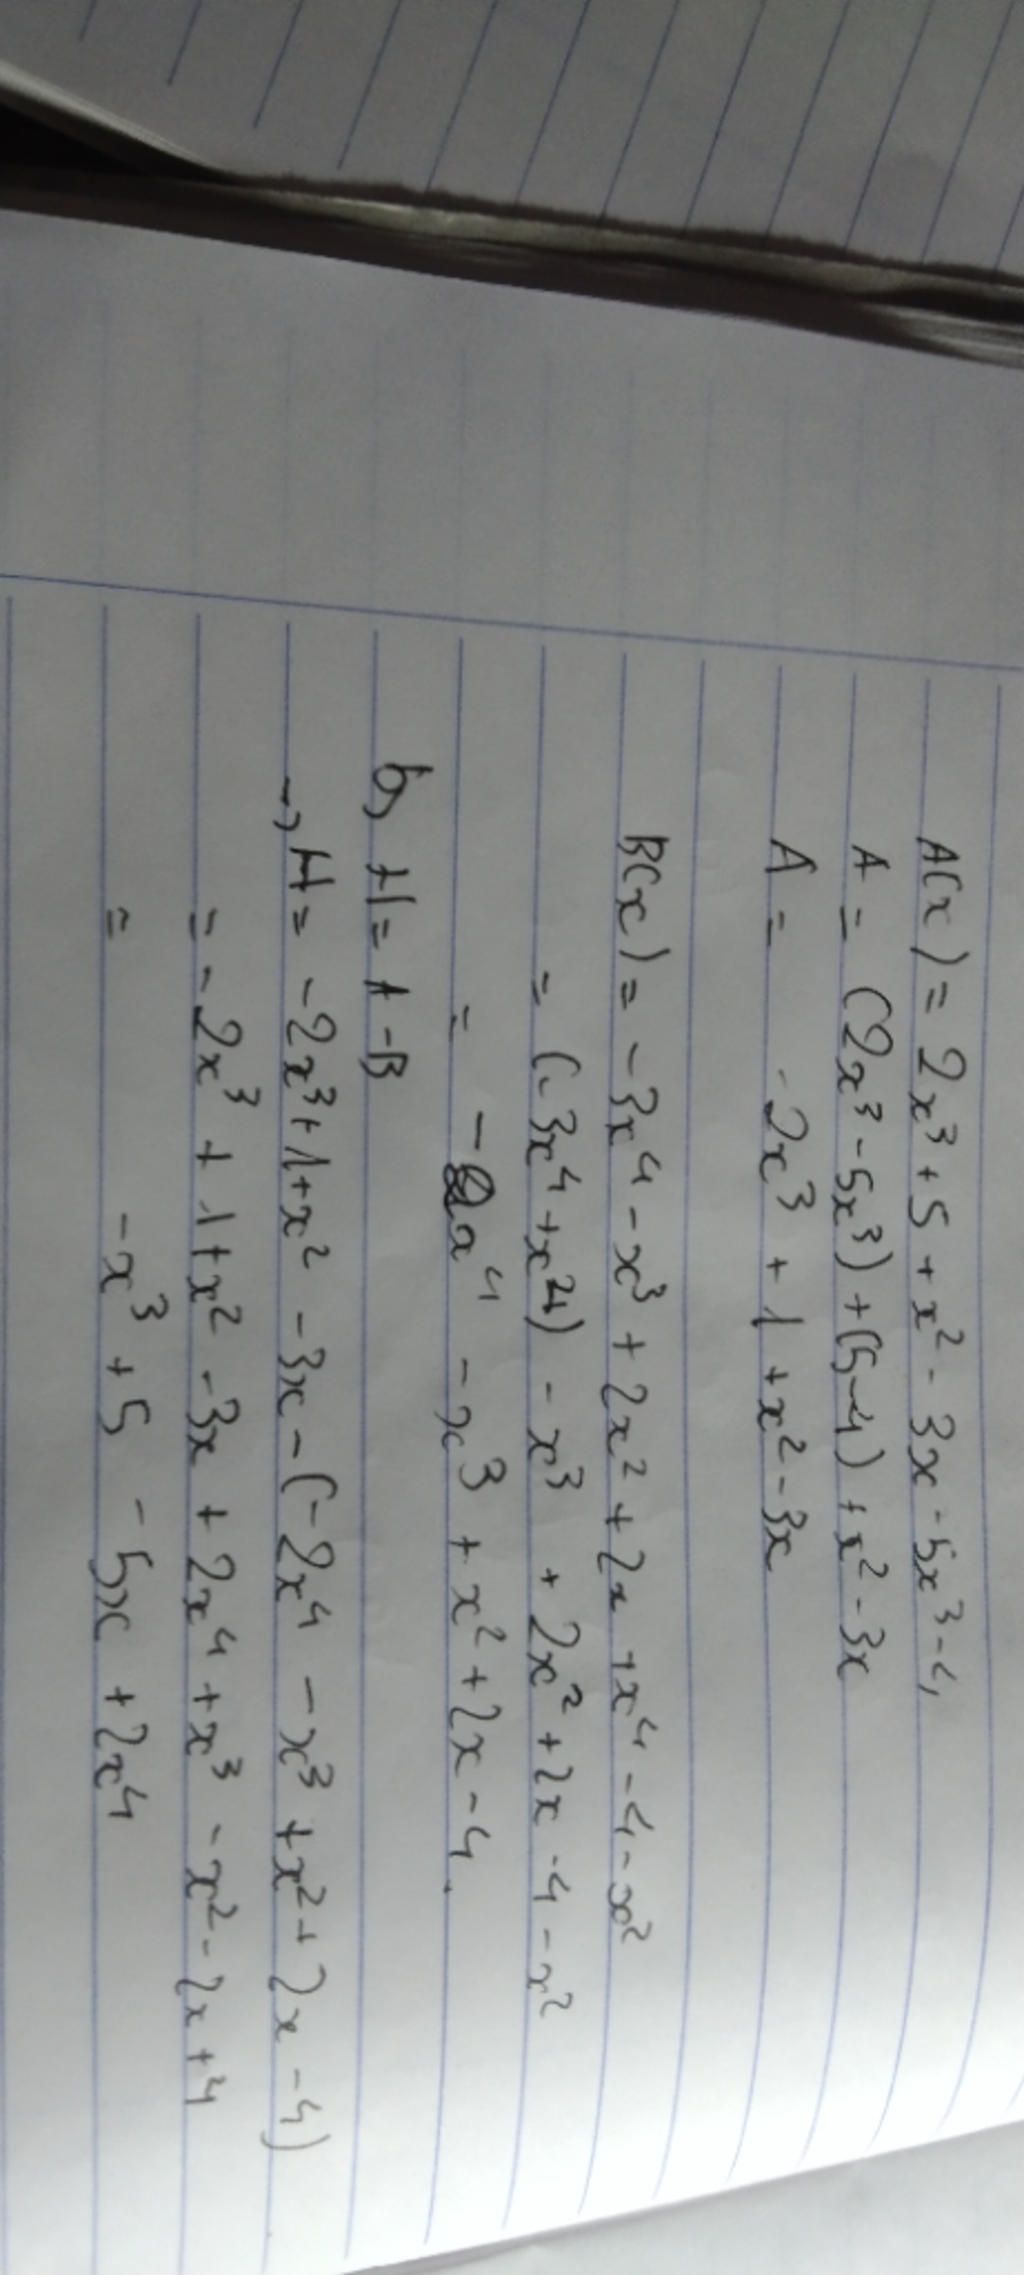 A(x) = 2x³ + 5 + x² - 3x - 5x³ - 4
A = (2x³ - 5x³) + (5-4) + x² - 3x
A = - 2x³ + 1 + x² - 3x
B(x) = - 3x⁴ - x³ + 2x² + 2x + x⁴ - 4 - x²
= (-3x⁴ + x⁴) - x³ + 2x² + 2x - 4 - x²
= - 2x⁴ - x³ + x² + 2x - 4.
b, H = A - B
→ H = - 2x³ + 1 + x² - 3x - (- 2x⁴ - x³ + x² + 2x - 4)
= - 2x³ + 1 + x² - 3x + 2x⁴ + x³ - x² - 2x + 4
= - x³ + 5 - 5x + 2x⁴